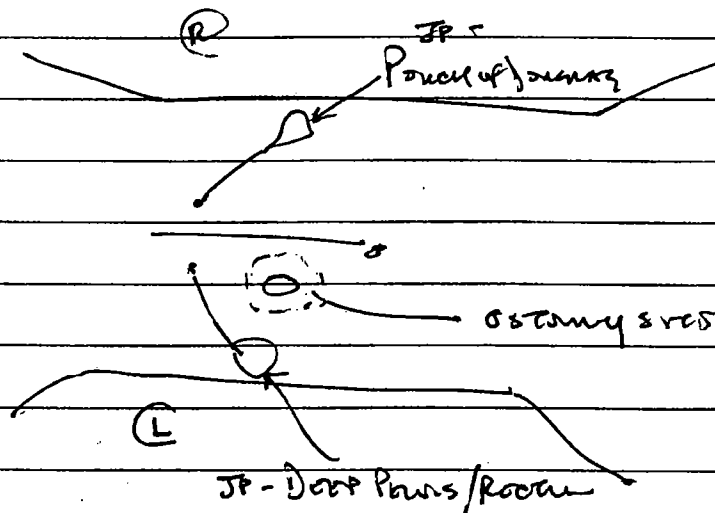 R
JP -
Pouch of
ostomy site
L
JP - Deep Pelvis / Rectal